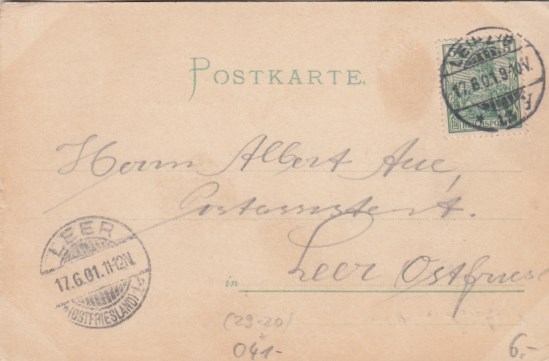 POSTKARTE.
LEIPZIG
17.6.01.9-10V.
Herrn Albert Aue,
Postassistent.
in Leer Ostfries
LEER
17.6.01.11-12N.
(OSTFRIESLAND)
(29-20)
041-
6.-